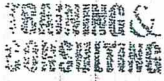 TRAINING &
CONSULTING